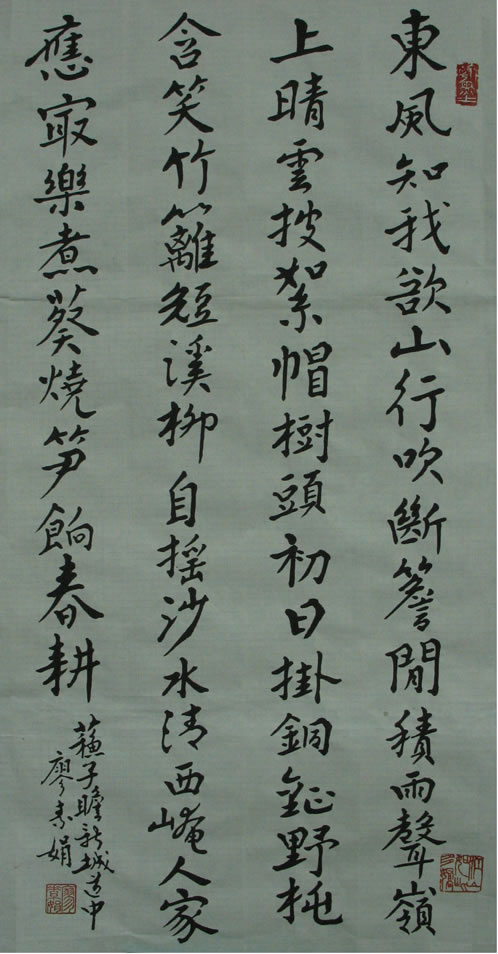 東風知我欲山行吹斷簷閒積雨聲嶺
上晴雲披絮帽樹頭初日掛銅鉦野桃
含笑竹籬短溪柳自搖沙水清西崦人家
應最樂煮葵燒笋餉春耕
蘇子瞻新城道中
廖素娟